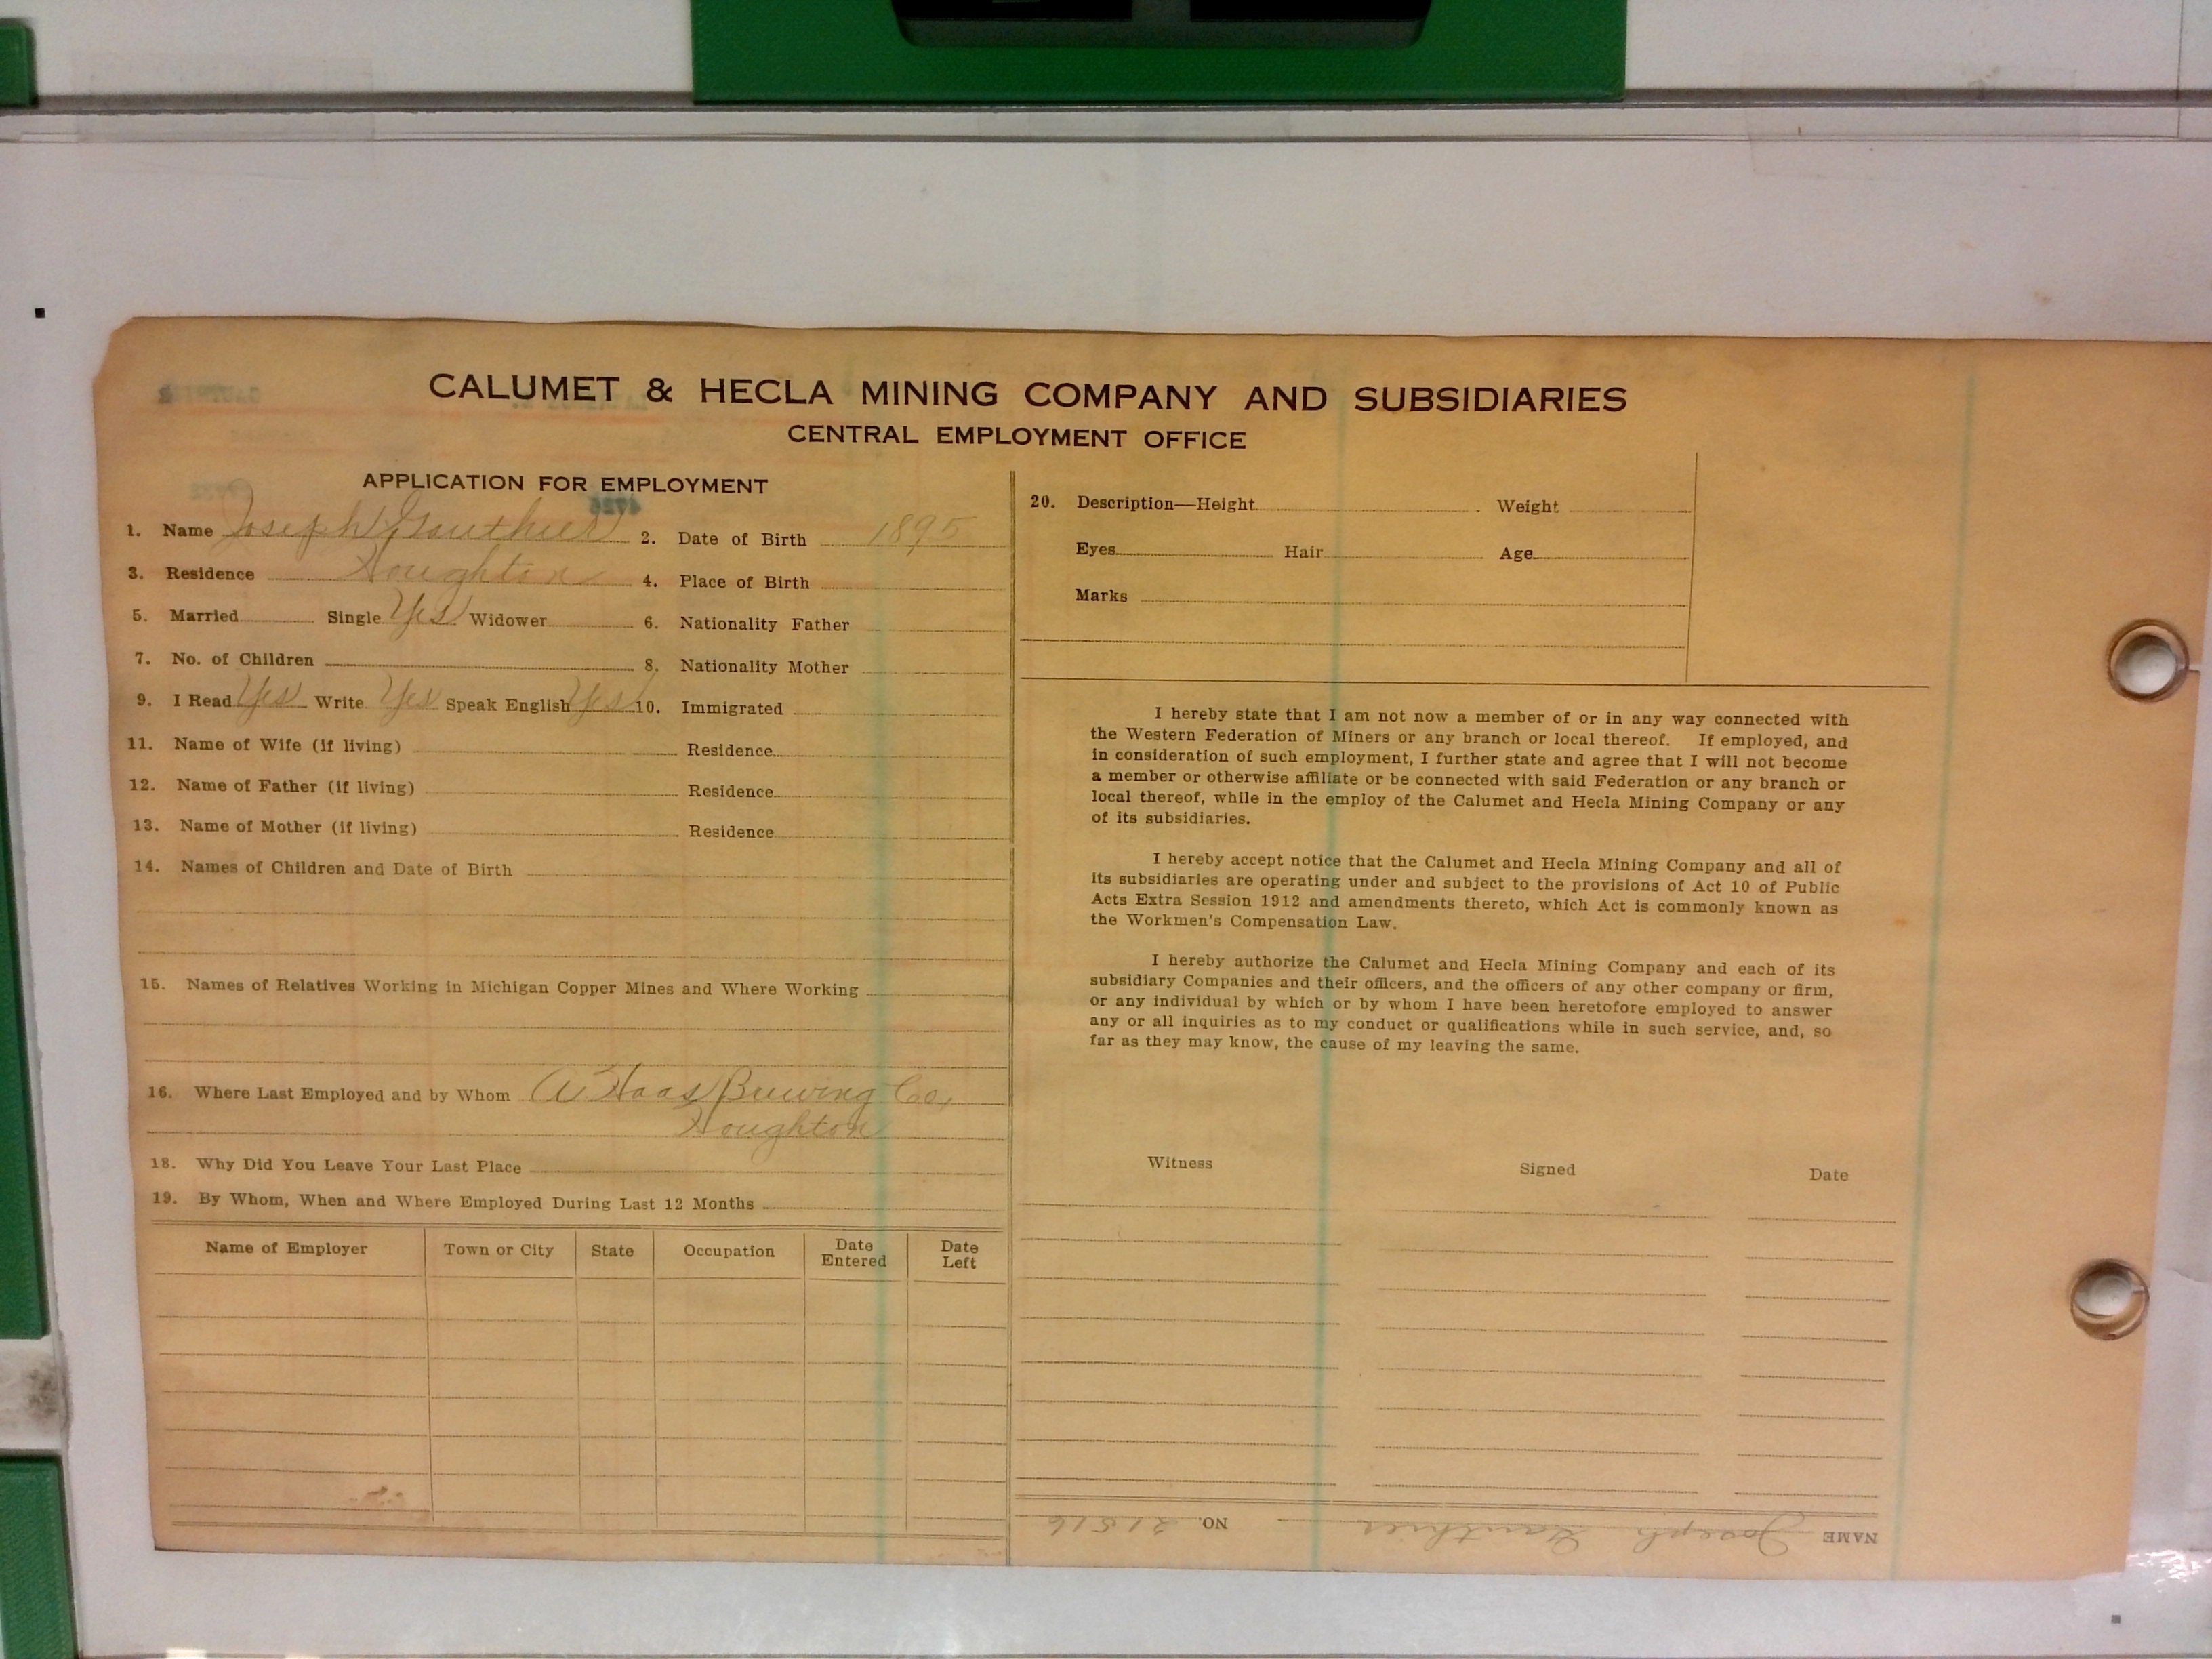 CALUMET & HECLA MINING COMPANY AND SUBSIDIARIES
CENTRAL EMPLOYMENT OFFICE
APPLICATION FOR EMPLOYMENT
1. Name Joseph Gauthier 2. Date of Birth 1895
3. Residence Houghton 4. Place of Birth
5. Married Single Yes Widower 6. Nationality Father
7. No. of Children 8. Nationality Mother
9. I Read Yes Write Yes Speak English Yes 10. Immigrated
11. Name of Wife (if living) Residence
12. Name of Father (if living) Residence
13. Name of Mother (if living) Residence
14. Names of Children and Date of Birth
15. Names of Relatives Working in Michigan Copper Mines and Where Working
16. Where Last Employed and by Whom A Haas Brewing Co,
Houghton
18. Why Did You Leave Your Last Place
19. By Whom, When and Where Employed During Last 12 Months
Name of Employer Town or City State Occupation Date Entered Date Left
20. Description—Height Weight
Eyes Hair Age
Marks
I hereby state that I am not now a member of or in any way connected with
the Western Federation of Miners or any branch or local thereof. If employed, and
in consideration of such employment, I further state and agree that I will not become
a member or otherwise affiliate or be connected with said Federation or any branch or
local thereof, while in the employ of the Calumet and Hecla Mining Company or any
of its subsidiaries.
I hereby accept notice that the Calumet and Hecla Mining Company and all of
its subsidiaries are operating under and subject to the provisions of Act 10 of Public
Acts Extra Session 1912 and amendments thereto, which Act is commonly known as
the Workmen's Compensation Law.
I hereby authorize the Calumet and Hecla Mining Company and each of its
subsidiary Companies and their officers, and the officers of any other company or firm,
or any individual by which or by whom I have been heretofore employed to answer
any or all inquiries as to my conduct or qualifications while in such service, and, so
far as they may know, the cause of my leaving the same.
Witness Signed Date
NAME Joseph Gauthier NO. 21516